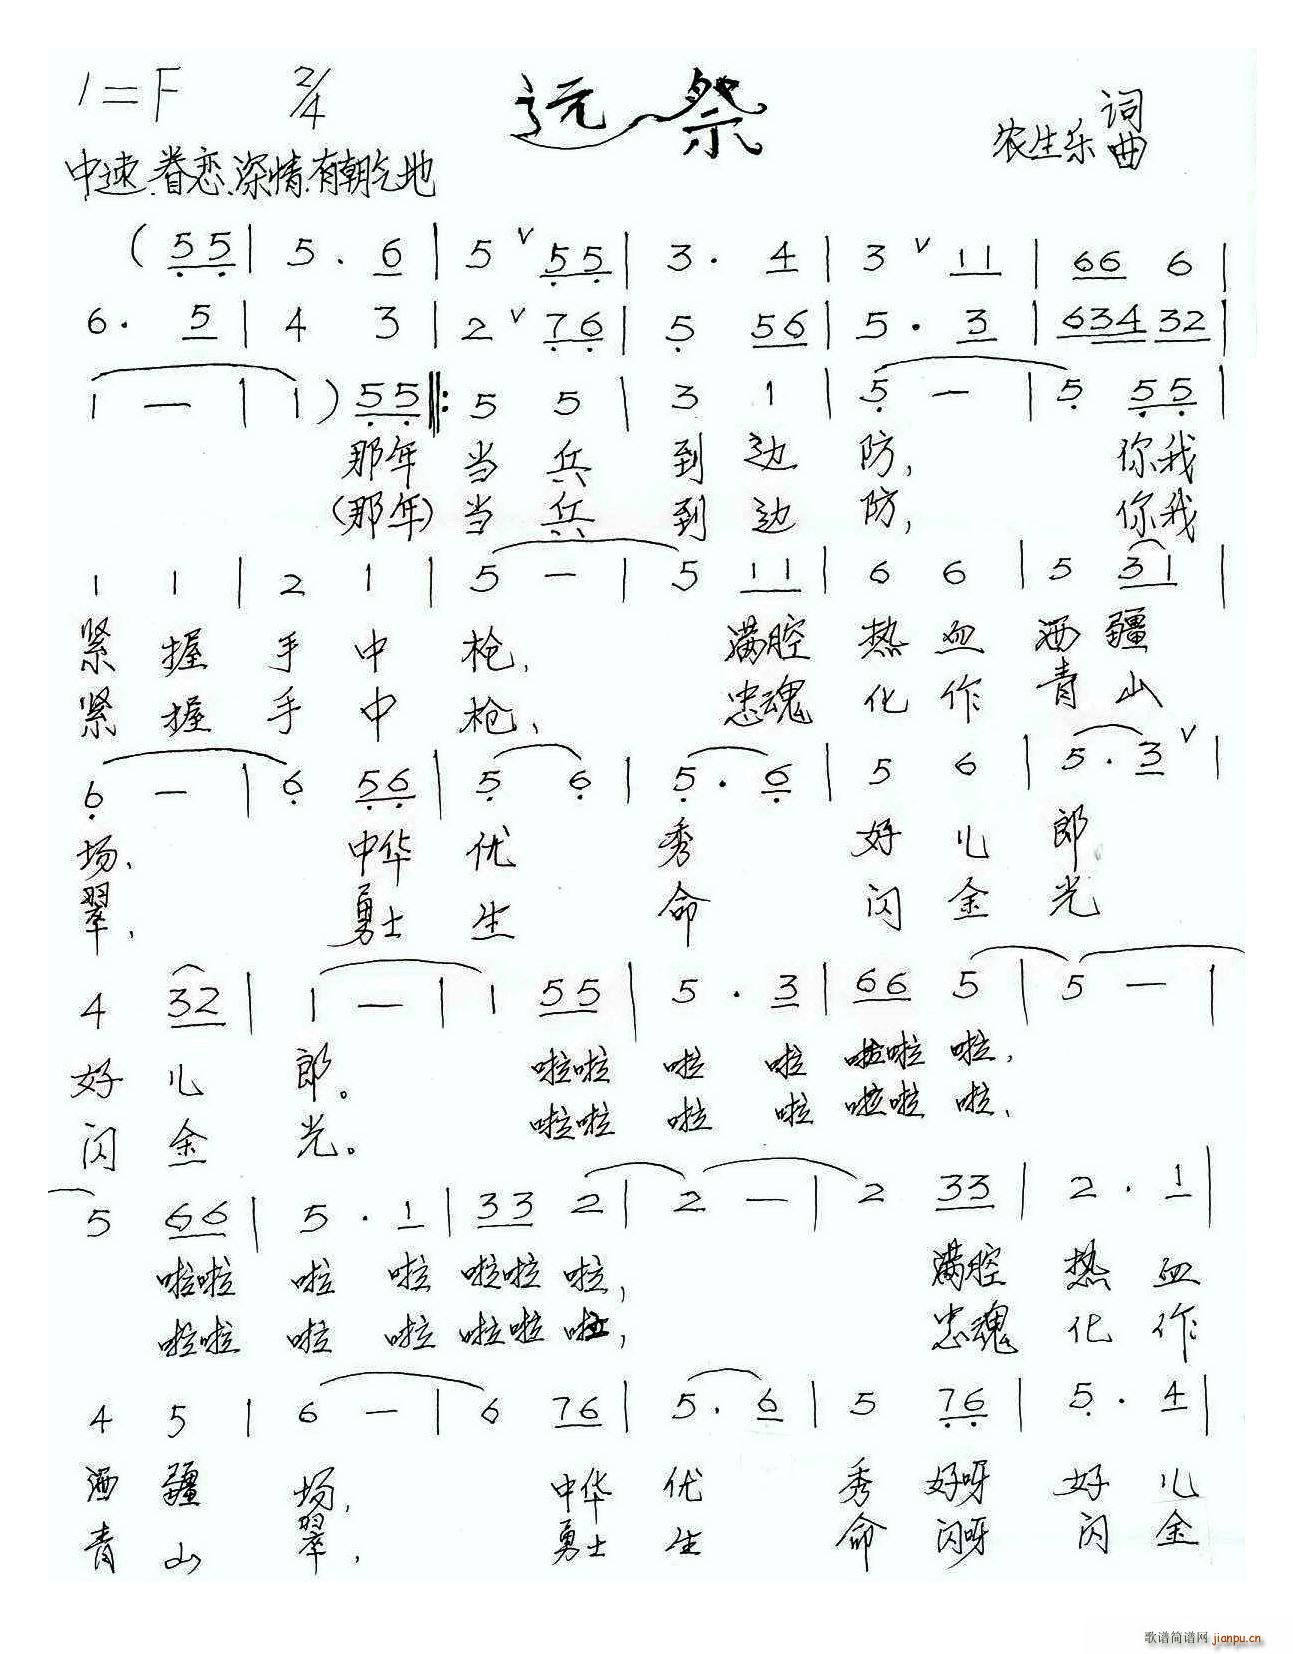 1=F 2/4 远祭 农生乐 词曲
中速、眷恋、深情、有朝气地
( 5 5 | 5 . 6 | 5 ∨ 5 5 | 3 . 4 | 3 ∨ 1 1 | 6 6 6 |
6 . 5 | 4 3 | 2 ∨ 7 6 | 5 5 6 | 5 . 3 | 6 3 4 3 2 |
1 — | 1 ) 5 5 ‖: 5 5 | 3 1 | 5 — | 5 5 5 |
那年 当 兵 到 边 防, 你我
(那年) 当 兵 到 边 防, 你我
1 1 | 2 1 | 5 — | 5 1 1 | 6 6 | 5 3 1 |
紧 握 手 中 枪, 满腔 热 血 洒 疆
紧 握 手 中 枪, 忠魂 化 作 青 山
6 — | 6 5 6 | 5 6 | 5 . 6 | 5 6 | 5 . 3 ∨ |
场, 中华 优 秀 好 儿 郎
翠, 勇士 生 命 闪 金 光
4 3 2 | 1 — | 1 5 5 | 5 . 3 | 6 6 5 | 5 — |
好 儿 郎。 啦啦 啦 啦 啦啦 啦,
闪 金 光。 啦啦 啦 啦 啦啦 啦,
5 6 6 | 5 . 1 | 3 3 2 | 2 — | 2 3 3 | 2 . 1 |
啦啦 啦 啦 啦啦 啦, 满腔 热 血
啦啦 啦 啦 啦啦 啦, 忠魂 化 作
4 5 | 6 — | 6 7 6 | 5 . 6 | 5 7 6 | 5 . 4 |
洒 疆 场, 中华 优 秀 好呀 好 儿
青 山 翠, 勇士 生 命 闪呀 闪 金
歌谱简谱网 jianpu.cn